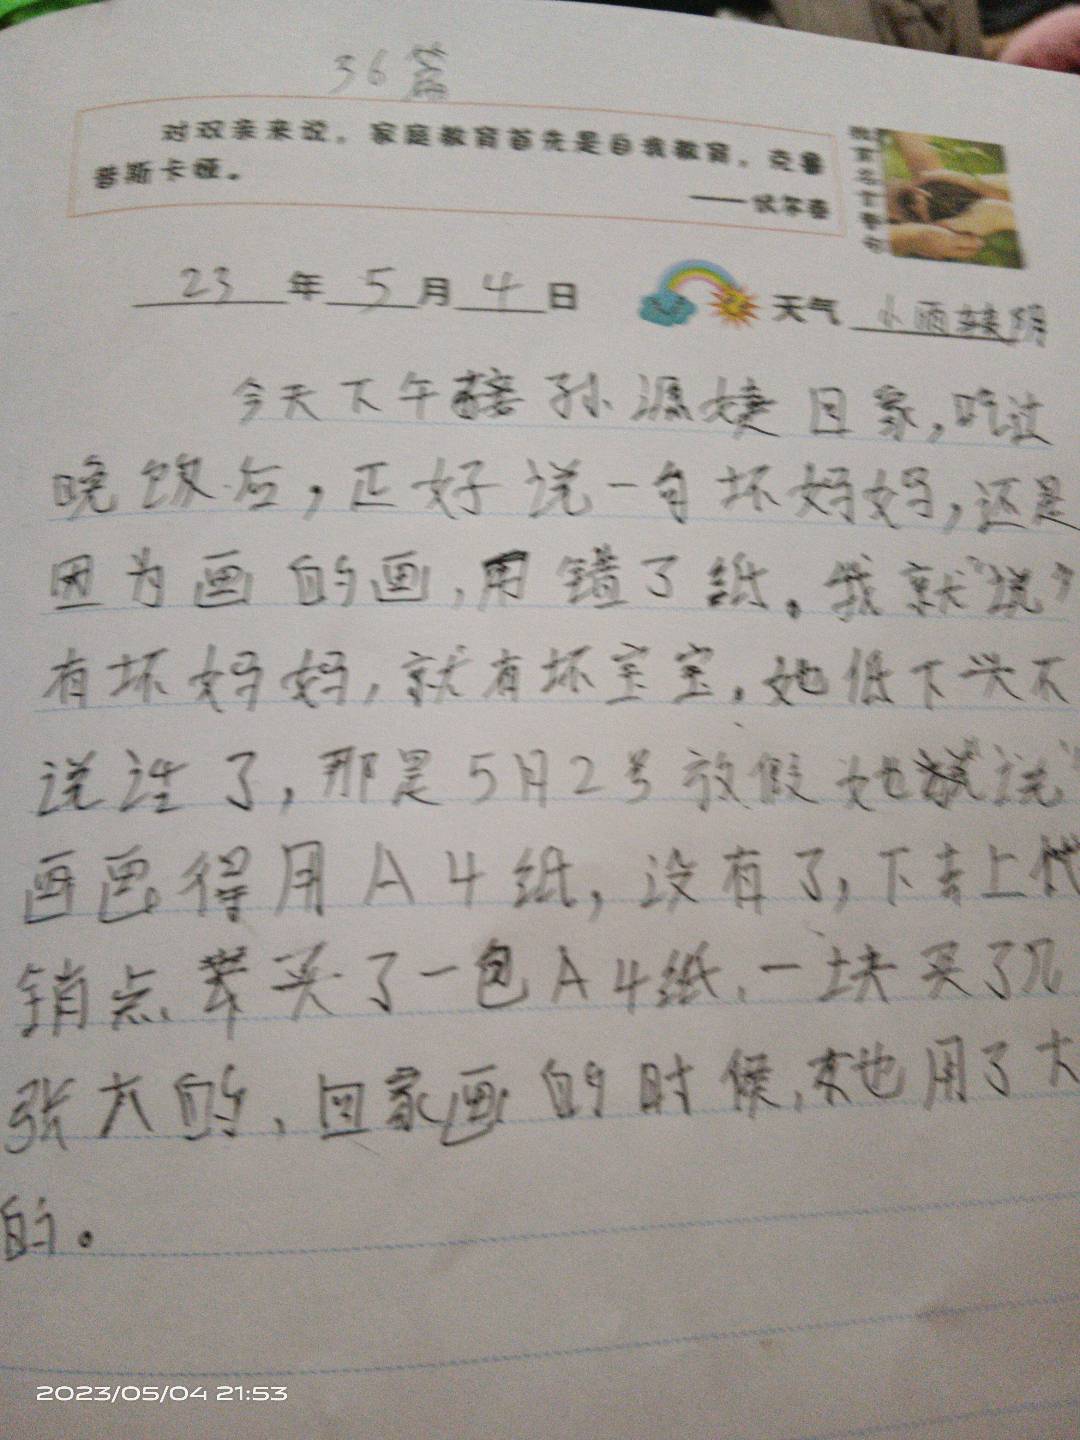 36篇
对双亲来说，家庭教育首先是自我教育。克鲁
普斯卡娅。
——伏尔泰
教育名言警句
23年5月4日 天气 小雨转阴
今天下午 孙源 回家，吃过
晚饭后，正好说一句坏妈妈，还是
因为画的画，用错了纸。我就“说”
有坏妈妈，就有坏宝宝。她低下头不
说话了，那是5月2号放假她就“说”
画画得用A4纸，没有了，下去上代
销点 买了一包A4纸，一块买了几
张大的，回家画的时候，也用了大
的。
2023/05/04 21:53